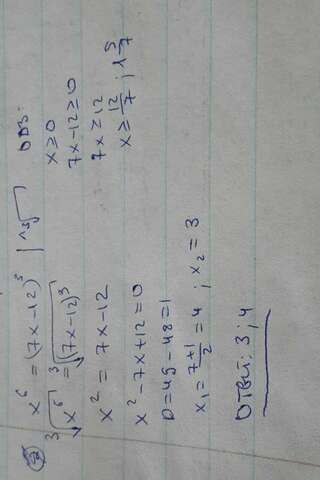 ③ x⁶ = (7x-12)³ | ^3√
³√x⁶ = ³√(7x-12)³
x² = 7x-12
x² - 7x + 12 = 0
D = 49 - 48 = 1
x₁ = (7+1)/2 = 4 ; x₂ = 3
Ответ: 3; 4
ОДЗ:
x ≥ 0
7x - 12 ≥ 0
7x ≥ 12
x ≥ 12/7 ; 1 5/7